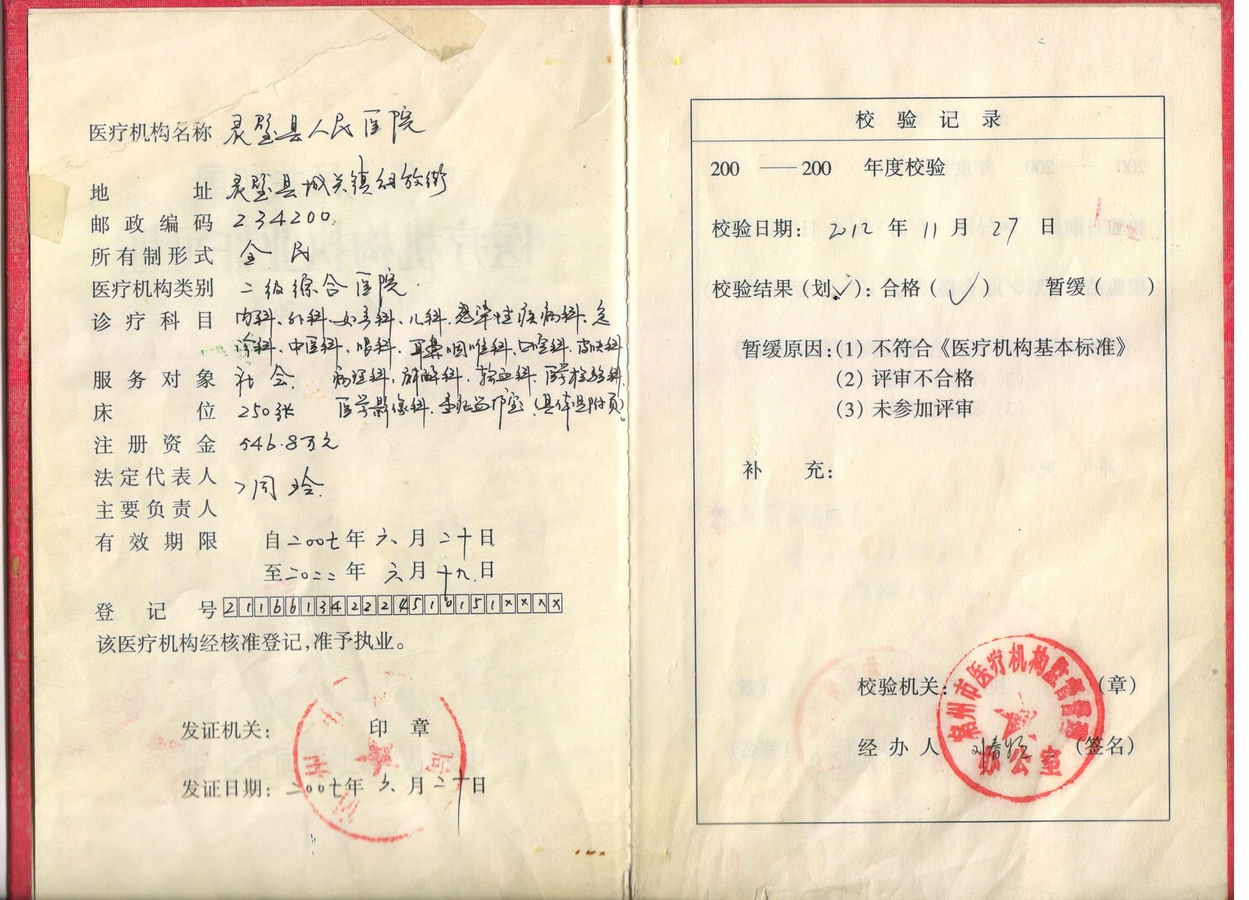 医疗机构名称 灵璧县人民医院
地址 灵璧县城关镇解放街
邮政编码 234200
所有制形式 全民
医疗机构类别 二级综合医院
诊疗科目 内科、外科、妇产科、儿科、感染性疾病科、急
诊科、中医科、眼科、耳鼻咽喉科、口腔科、皮肤科
服务对象 社会 病理科、麻醉科、输血科、医学检验科
床位 250张 医学影像科、(具体见附页)
注册资金 546.8万元
法定代表人
周玲
主要负责人
有效期限 自二00七年六月二十日
至二0二二年六月十九日
登记号
该医疗机构经核准登记,准予执业。
发证机关: 印章
发证日期: 二00七年六月二十日
校验记录
200 ——200 年度校验
校验日期: 2012年11月27日
校验结果(划✓): 合格(✓) 暂缓( )
暂缓原因:(1) 不符合《医疗机构基本标准》
(2) 评审不合格
(3) 未参加评审
补充:
宿州市医疗机构监督管理
校验机关: (章)
经办人 (签名)
办公室